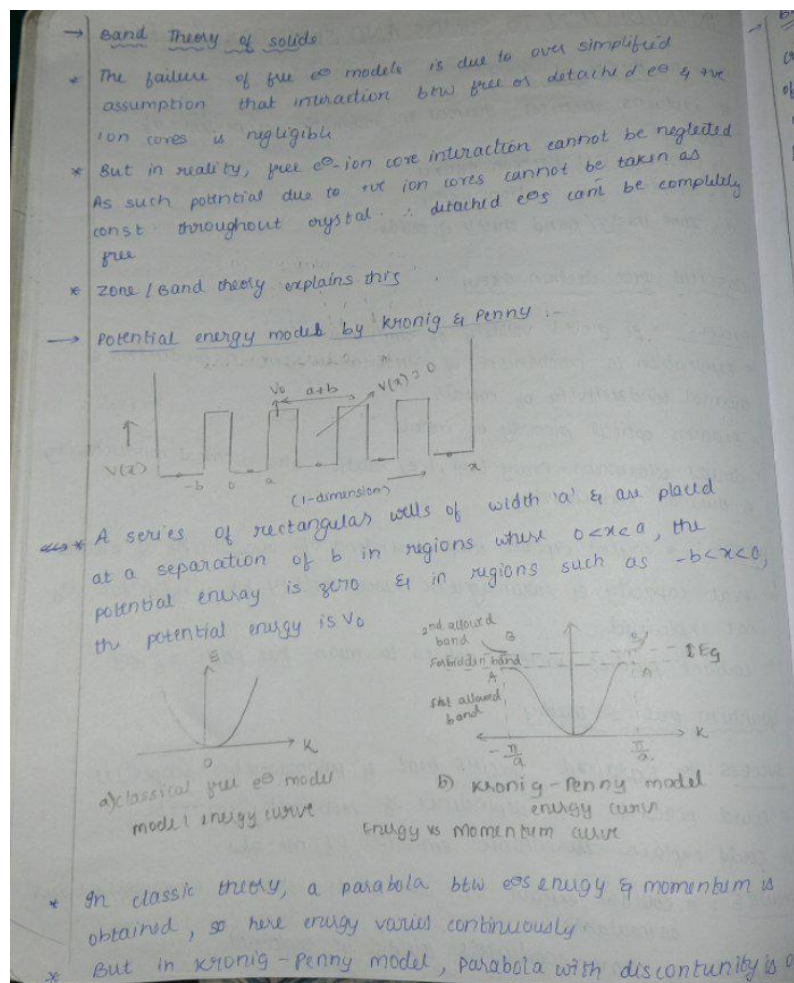 → Band Theory of solids
* The failure of free e⊖ models is due to over simplified
assumption that interaction btw free or detached e⊖ & +ve
ion cores is negligible
* But in reality, free e⊖-ion core interaction cannot be neglected
As such potential due to +ve ion cores cannot be taken as
const throughout crystal ∴ detached e⊖s cant be completely
free
* Zone / Band theory explains this
→ Potential energy models by Kronig & Penny :-
V0 a+b V(x)=0
V(x)
-b 0 a x
(1-dimension)
* A series of rectangular wells of width 'a' & are placed
at a separation of b in regions where 0<x<a, the
potential energy is zero & in regions such as -b<x<0,
the potential energy is V0
E
K
0
a) classical free e⊖ model
model energy curve
2nd allowed
band B B
Forbidden band ↕Eg
A A
first allowed
band
K
-π/a π/a
b) Kronig-Penny model
energy curve
Energy vs momentum curve
* In classic theory, a parabola btw e⊖s energy & momentum is
obtained, so here energy varies continuously
* But in Kronig-Penny model, parabola with discontunity is